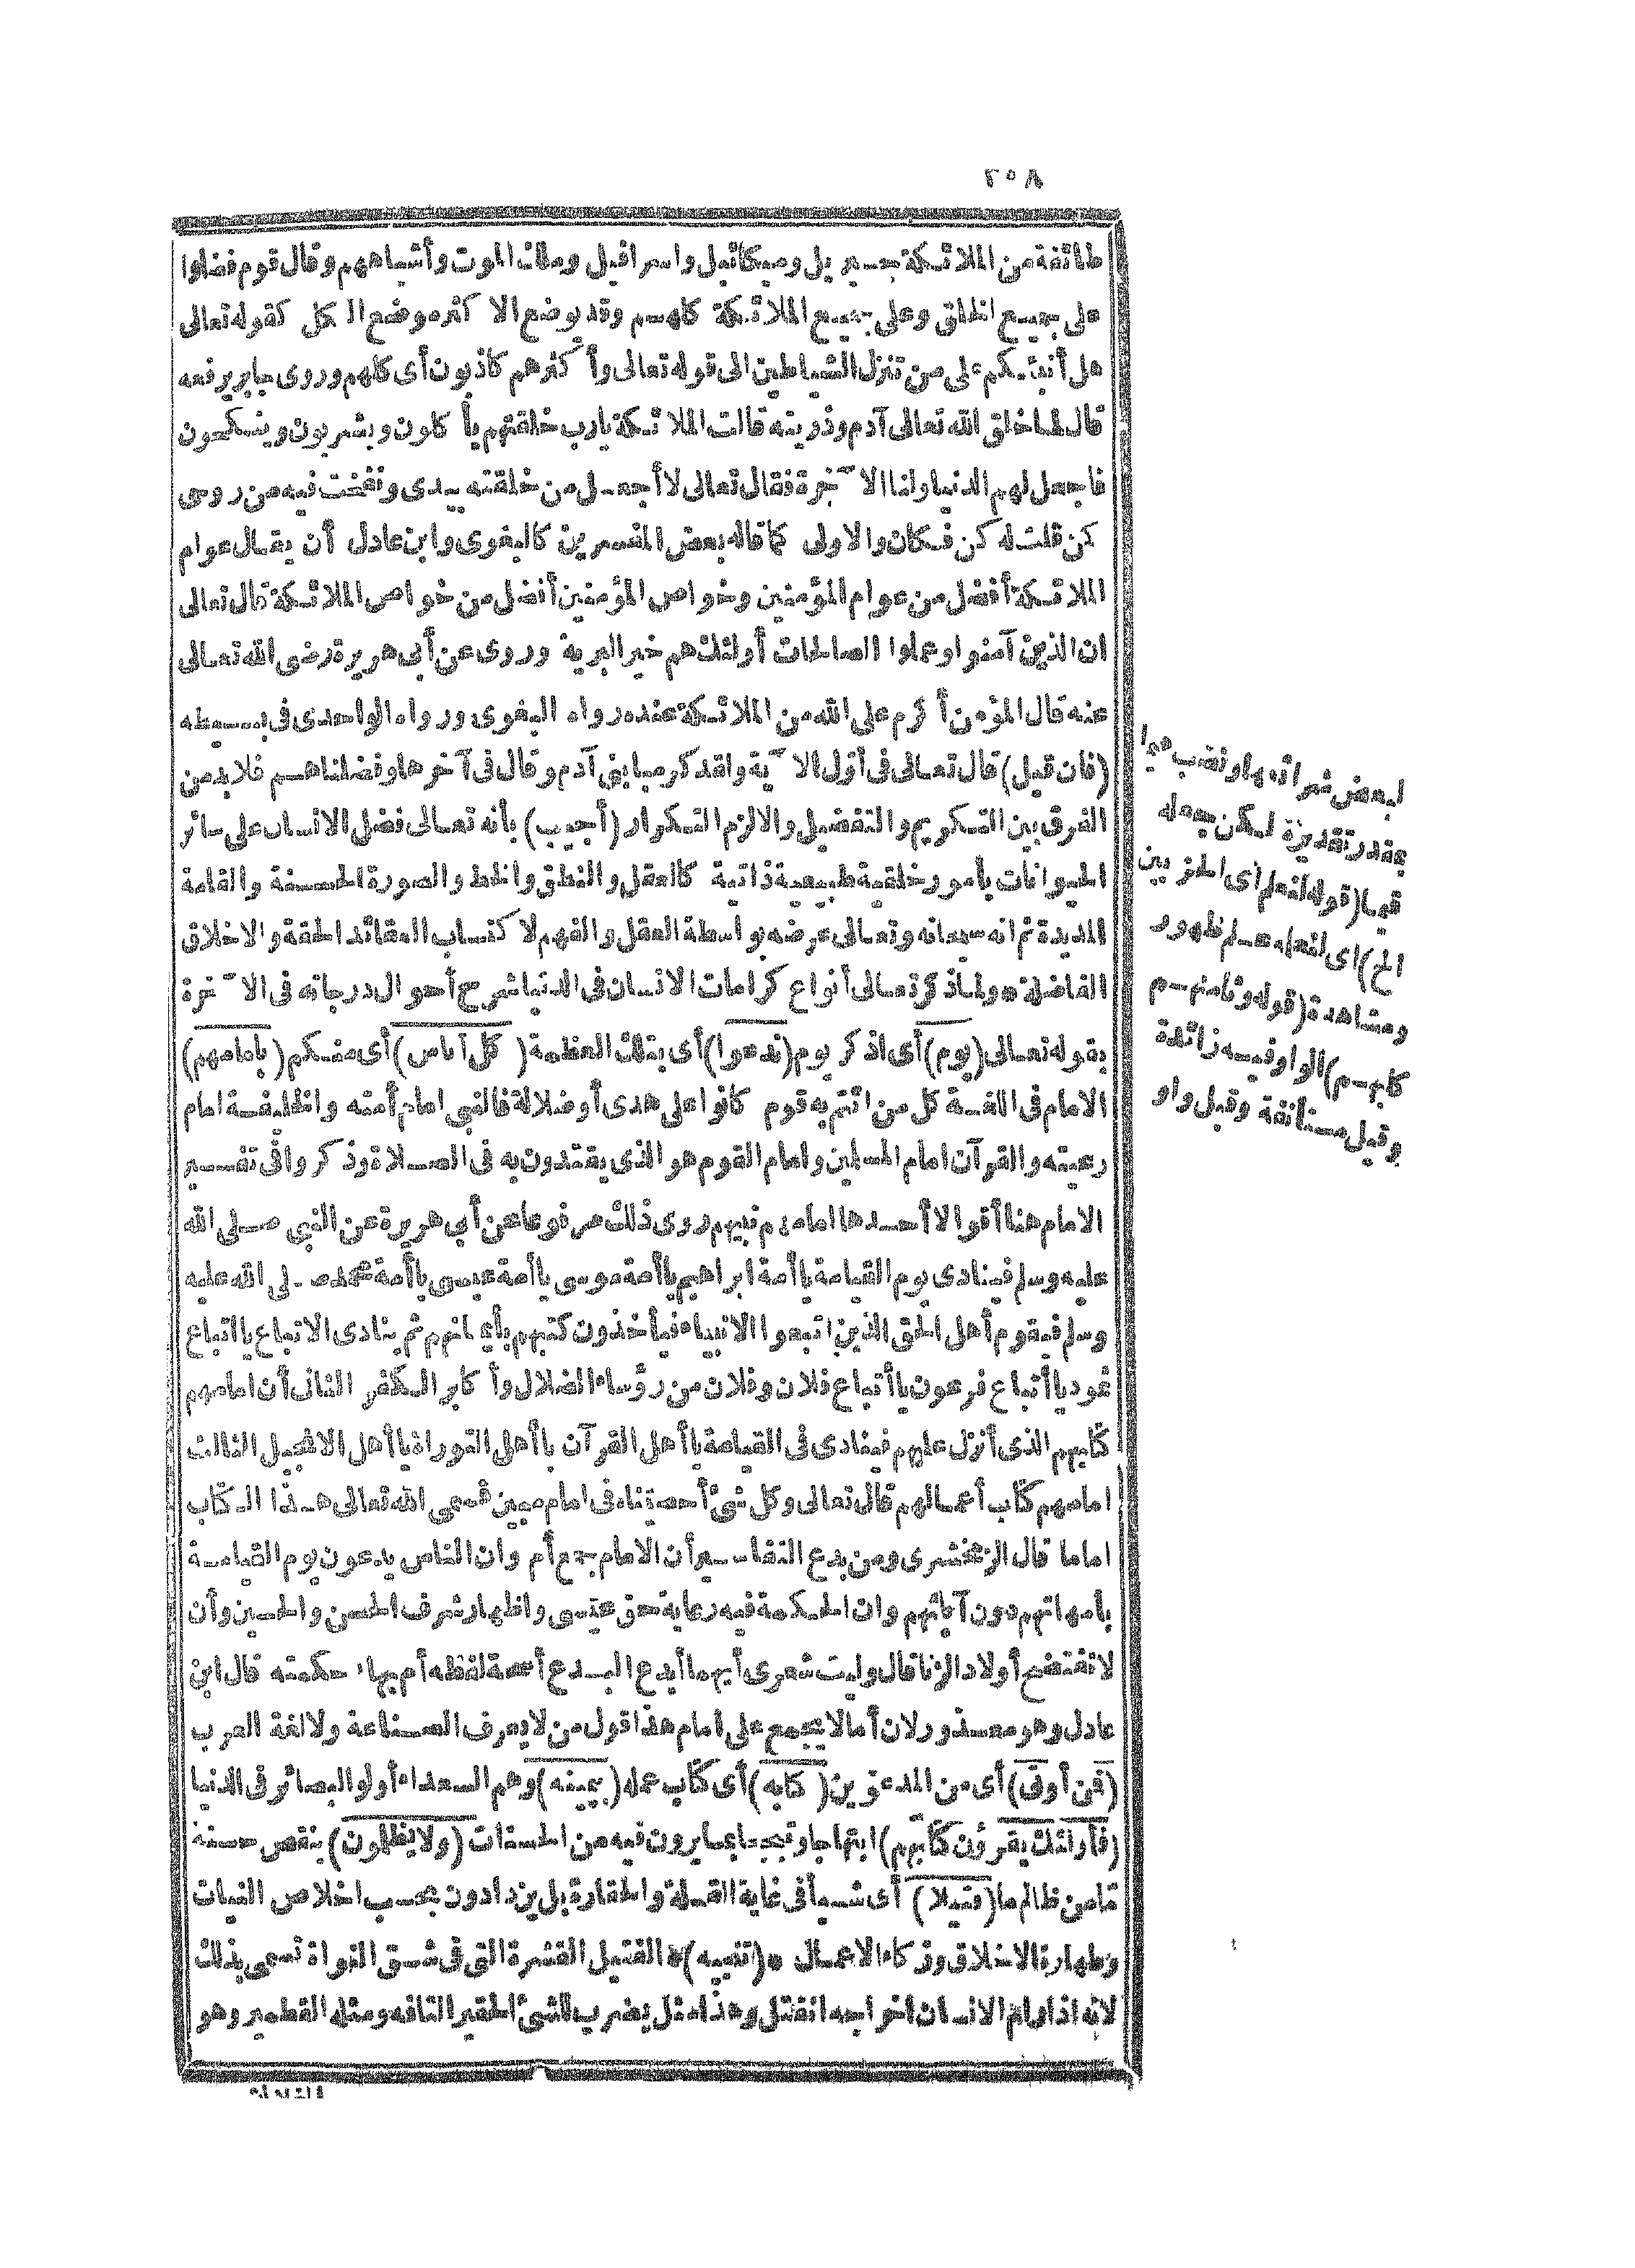 ٢٥٨
طائفة من الملائكة جبريل وميكائيل واسرافيل وملك الموت وأشباههم وقال قوم فضلوا
على جميع الخلق وعلى جميع الملائكة كلهم وقد يوضع الاكثر موضع الكل كقوله تعالى
هل أنبئكم على من تنزل الشياطين الى قوله تعالى وأكثرهم كاذبون أى كلهم وروى جابر يرفعه
قال لما خلق الله تعالى آدم وذريته قالت الملائكة يارب خلقتهم يأكلون ويشربون وينكحون
فاجعل لهم الدنيا ولنا الآخرة فقال تعالى لا أجعل من خلقته بيدى ونفخت فيه من روحى
كمن قلت له كن فكان والاولى كما قاله بعض المفسرين كالبغوى وابن عادل أن يقال عوام
الملائكة أفضل من عوام المؤمنين وخواص المؤمنين أفضل من خواص الملائكة قال تعالى
ان الذين آمنوا وعملوا الصالحات أولئك هم خير البرية وروى عن أبى هريرة رضى الله تعالى
عنه قال المؤمن أكرم على الله من الملائكة عنده رواه البغوى ورواه الواحدى فى بسيطه
(فان قيل) قال تعالى فى أول الآية ولقد كرمنا بنى آدم وقال فى آخرها وفضلناهم فلابد من
الفرق بين التكريم والتفضيل والالزم التكرار (أجيب) بأنه تعالى فضل الانسان على سائر
الحيوانات بأمور خلقية طبيعية ذاتية كالعقل والنطق والخط والصورة الحسنة والقامة
المديدة ثم انه سبحانه وتعالى عرضه بواسطة العقل والفهم لاكتساب العقائد الحقة والاخلاق
الفاضلة * ولما ذكر تعالى أنواع كرامات الانسان فى الدنيا شرح أحوال درجاته فى الآخرة
بقوله تعالى (يوم) أى اذكر يوم (ندعوا) أى بتلك العظمة (كل أناس) أى منكم (بامامهم)
الامام فى اللغة كل من ائتم به قوم كانوا على هدى أو ضلالة فالنبى امام أمته والخليفة امام
رعيته والقرآن امام المسلمين وامام القوم هو الذى يقتدون به فى الصلاة وذكروا فى تفسير
الامام هنا أقوالا أحدها امامهم نبيهم روى ذلك مرفوعا عن أبى هريرة عن النبى صلى الله
عليه وسلم فينادى يوم القيامة يا أمة ابراهيم يا أمة موسى يا أمة عيسى يا أمة محمد صلى الله عليه
وسلم فيقوم أهل الحق الذين اتبعوا الانبياء فيأخذون كتبهم بأيمانهم ثم ينادى الاتباع يا اتباع
ثمود يا أتباع فرعون يا أتباع فلان وفلان من رؤساء الضلال وأكابر الكفر الثانى أن امامهم
كتابهم الذى أنزل عليهم فينادى فى القيامة يا أهل القرآن يا أهل التوراة يا أهل الانجيل الثالث
امامهم كتاب أعمالهم قال تعالى وكل شئ أحصيناه فى امام مبين فسمى الله تعالى هذا الكتاب
اماما قال الزمخشرى ومن بدع التفاسير أن الامام جمع أم وان الناس يدعون يوم القيامة
بأمهاتهم دون آبائهم وان الحكمة فيه رعاية حق عيسى واظهار شرف الحسن والحسين وأن
لا تفتضح أولاد الزنا قال وليت شعرى أيهما أبدع البدع أصحة لفظه أم بهاء حكمته قال ابن
عادل وهو معذور لان أما لا يجمع على امام هذا قول من لا يعرف الصناعة ولا لغة العرب
(فمن أوتى) أى من المدعوّين (كتابه) أى كتاب عمله (بيمينه) وهم السعداء أولو البصائر فى الدنيا
(فأولئك يقرؤن كتابهم) ابتهاجا وتبجحا بما يرون فيه من الحسنات (ولا يظلمون) بنقص حسنة
ما من ظالم ما (فتيلا) أى شيأ فى غاية القلة والحقارة بل يزدادون بحسب اخلاص النيات
وطهارة الاخلاق وزكاء الاعمال * (تنبيه) * الفتيل القشرة التى فى شق النواة تسمى بذلك
لانه اذا رام الانسان اخراجه انفتل وهذا مثل يضرب للشئ الحقير التافه ومثله القطمير وهو
لبعض شمرائها ونصب هيرا
بمقدر تقديره لكن جعله
قيما (قوله لنعلم أى الحزبين
الخ) اى لنعلم علم ظهور
ومشاهدة (قوله وثامنهم
كلبهم) الواو فيه زائدة
وقيل مستأنفة وقيل واو